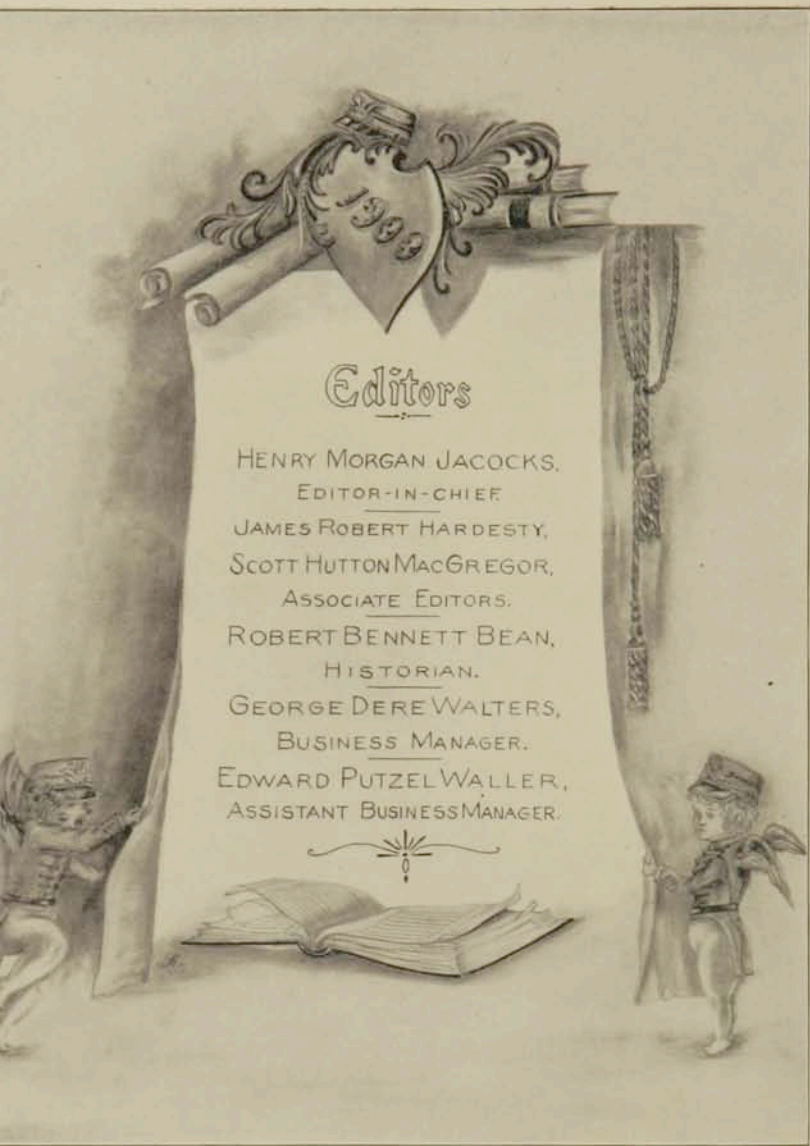 1900
Editors
HENRY MORGAN JACOCKS,
EDITOR-IN-CHIEF.
JAMES ROBERT HARDESTY,
SCOTT HUTTON MACGREGOR,
ASSOCIATE EDITORS.
ROBERT BENNETT BEAN,
HISTORIAN.
GEORGE DERE WALTERS,
BUSINESS MANAGER.
EDWARD PUTZEL WALLER,
ASSISTANT BUSINESS MANAGER.